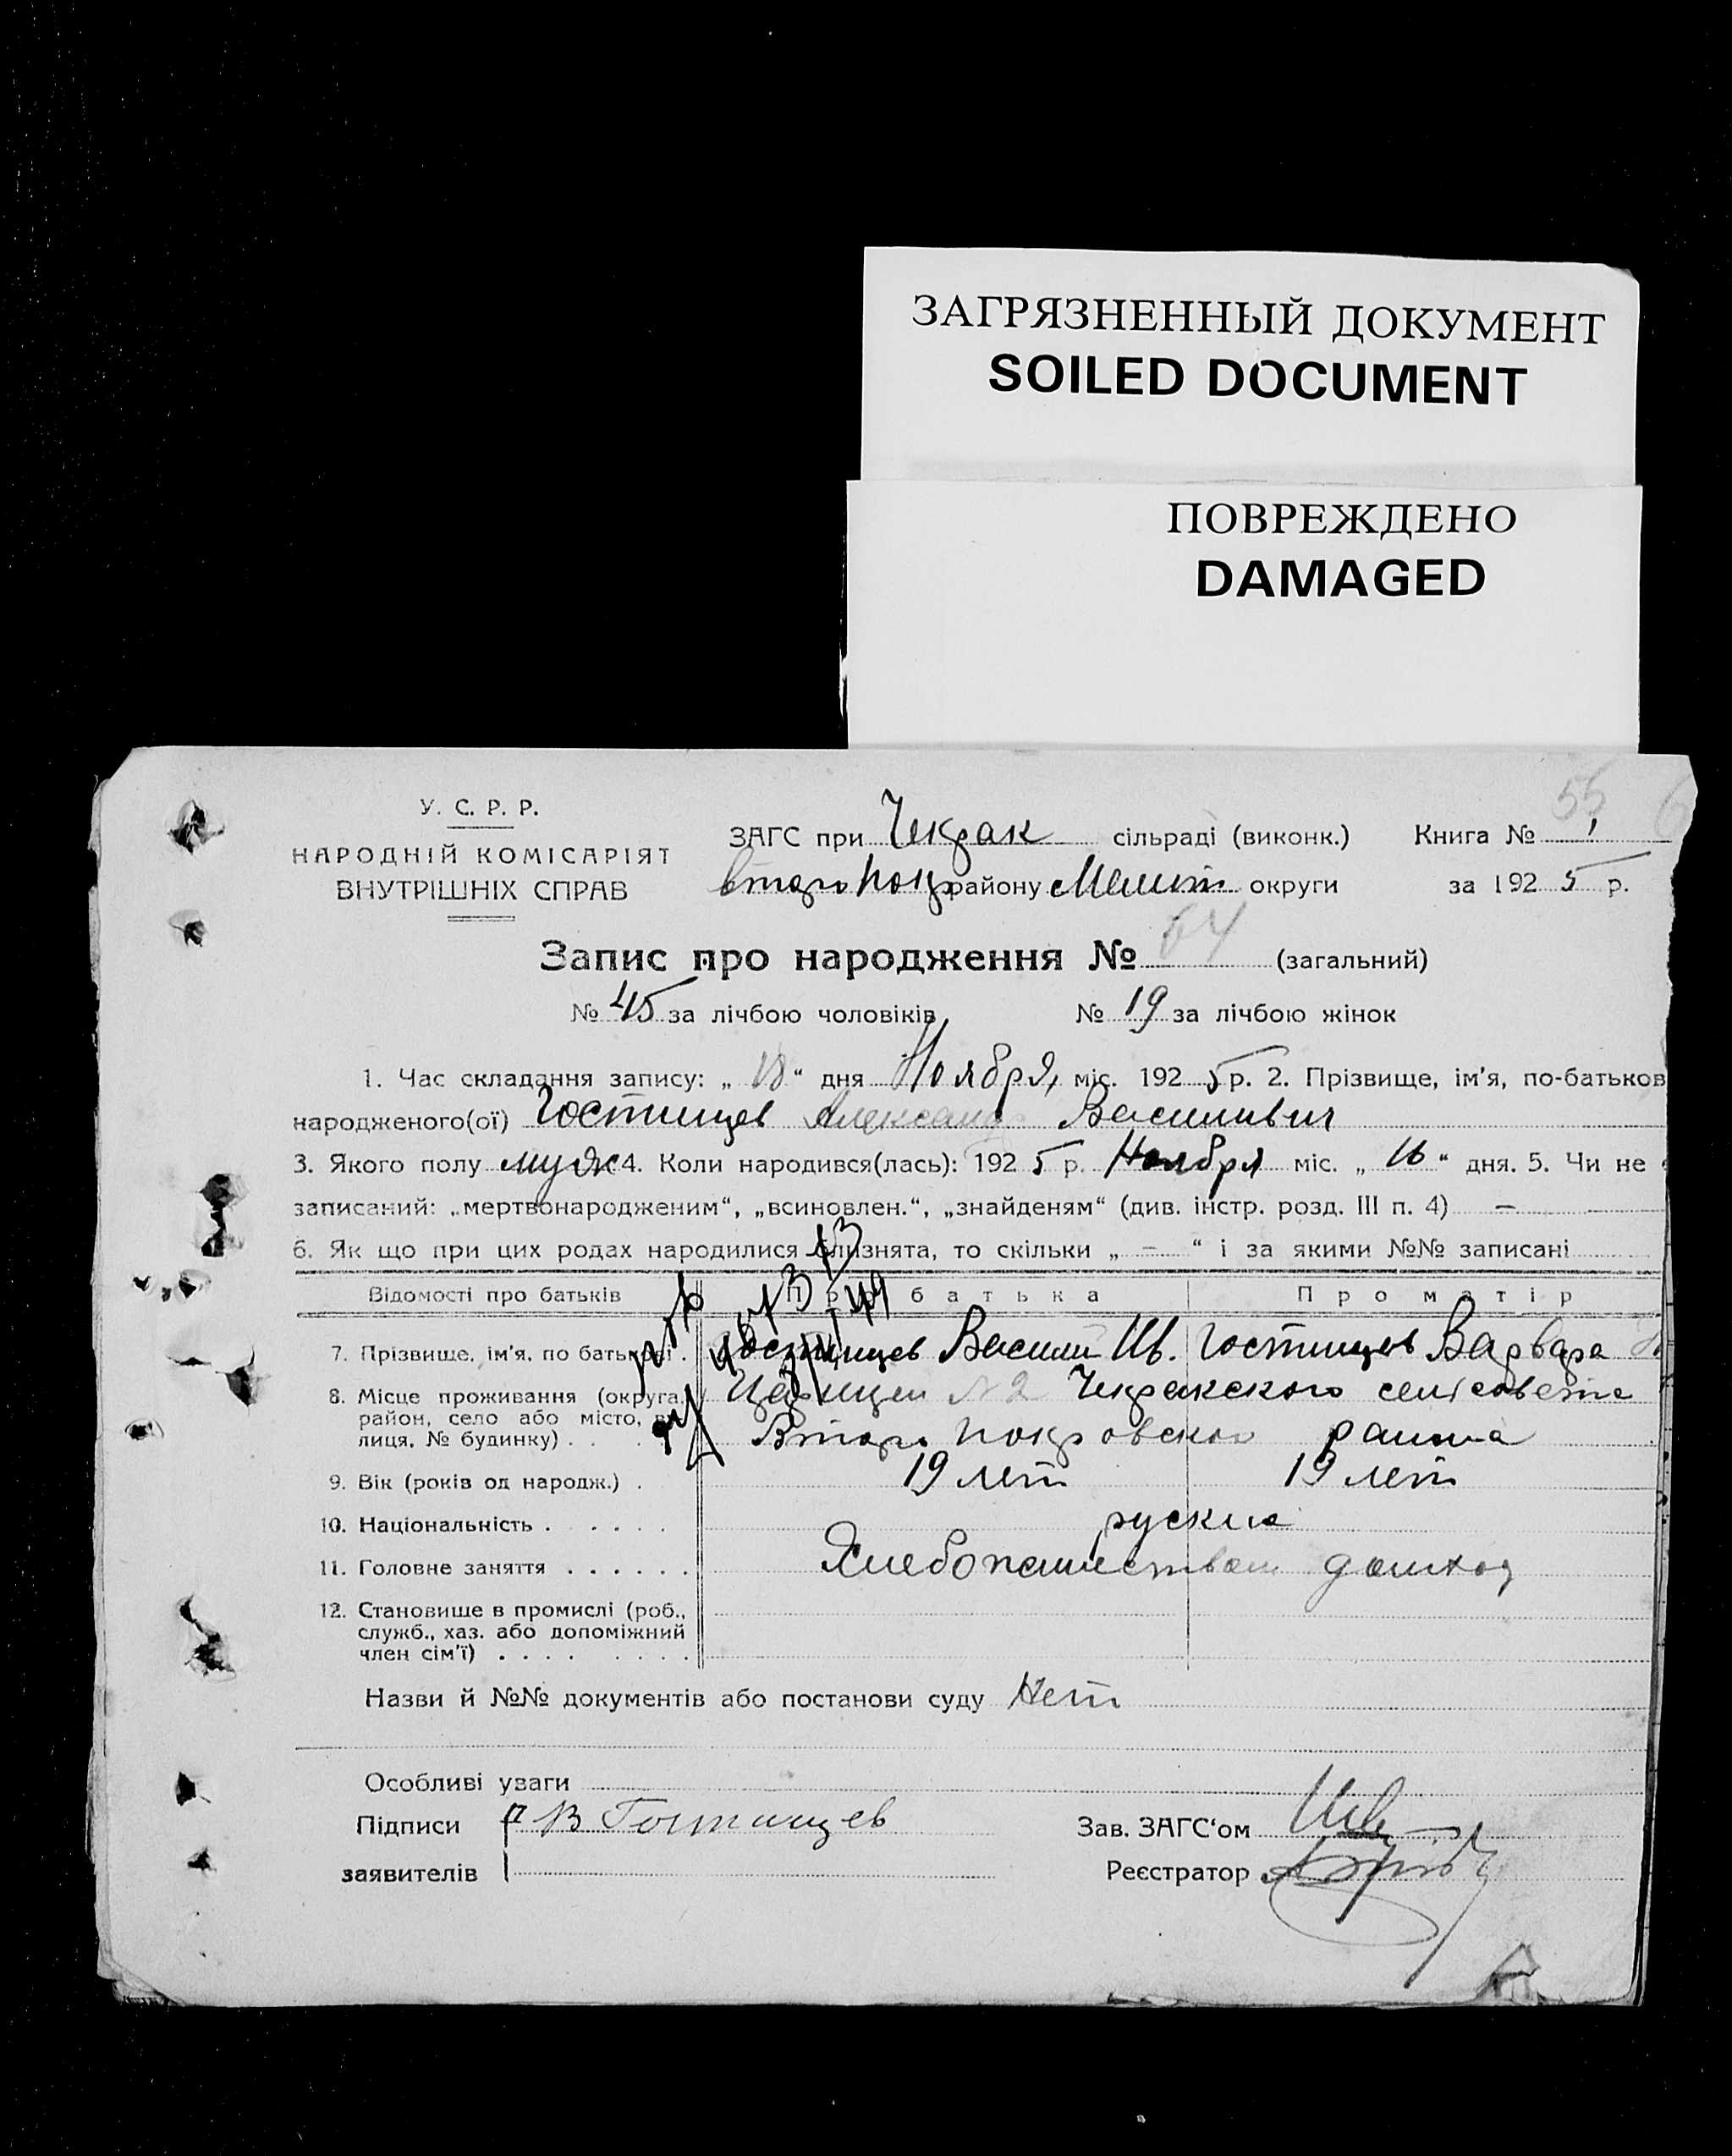 ЗАГРЯЗНЕННЫЙ ДОКУМЕНТ
SOILED DOCUMENT
ПОВРЕЖДЕНО
DAMAGED
55
У. С. Р. Р.
НАРОДНІЙ КОМІСАРІЯТ
ВНУТРІШНІХ СПРАВ
ЗАГС при Чекрак сільраді (виконк.) Книга № 1
району Мелит округи за 1925 р.
Запис про народження № 64 (загальний)
№ 45 за лічбою чоловіків № 19 за лічбою жінок
1. Час складання запису: „ 18 “ дня Ноября міс. 1925 р. 2. Прізвище, ім'я, по-батьков
народженого(ої) Гостищев Александр Василивич
3. Якого полу муж 4. Коли народився(лась): 1925 р. Ноября міс. „ 16 “ дня. 5. Чи не
записаний: „мертвонародженим“, „всиновлен.“, „знайденям“ (див. інстр. розд. III п. 4) —
6. Як що при цих родах народилися близнята, то скільки „ — “ і за якими №№ записані
Відомості про батьків Про батька Про матір
7. Прізвище, ім'я, по батькові . Гостищев Василий Ив. Гостищев Варвара
8. Місце проживання (округа, № 2 Чекракского селсовета
район, село або місто, ву-
лиця, № будинку) . . . Второ Покровского раиона
9. Вік (років од народж.) . 19 лет 19 лет
10. Національність . . . . . . руские
11. Головне заняття . . . . . . Хлебопашеством домхоз
12. Становище в промислі (роб.,
служб., хаз. або допоміжний
член сім'ї) . . . . . . . .
Назви й №№ документів або постанови суду Нет
Особливі уваги
Підписи В Гостищев Зав. ЗАГС‘ом
заявителів Реєстратор